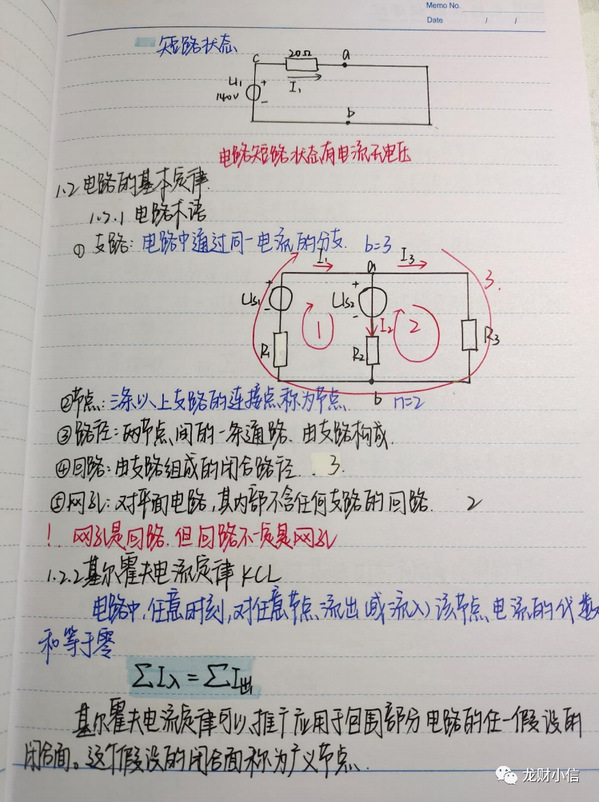 Memo No.
Date / /
短路状态
c 20Ω a
U1 + I1
140V -
b
电路短路状态有电流无电压
1.2 电路的基本定律.
1.2.1 电路术语
① 支路: 电路中通过同一电流的分支. b=3
I1 a I3
+ + 3.
Us1 Us2
- - I2
1 2
R1 R2 R3
b
②节点: 三条以上支路的连接点称为节点. n=2
③路径: 两节点间的一条通路. 由支路构成.
④回路: 由支路组成的闭合路径. 3.
⑤网孔: 对平面电路, 其内部不含任何支路的回路. 2
! 网孔是回路, 但回路不一定是网孔
1.2.2 基尔霍夫电流定律 KCL
电路中, 任意时刻, 对任意节点, 流出(或流入)该节点电流的代数
和等于零
ΣI入 = ΣI出
基尔霍夫电流定律可以推广应用于包围部分电路的任一假设的
闭合面。这个假设的闭合面称为广义节点.
龙财小信